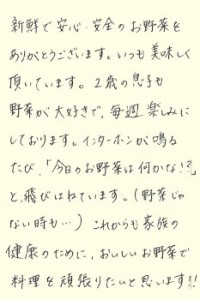 新鮮で安心・安全のお野菜を
ありがとうございます。いつも美味しく
頂いています。2歳の息子も
野菜が大好きで、毎週楽しみに
しております。インターホンが鳴る
たび、「今日のお野菜は何かな!?」
と、飛びはねています。(野菜じゃ
ない時も…)これからも家族の
健康のために、おいしいお野菜で
料理を頑張りたいと思います!!